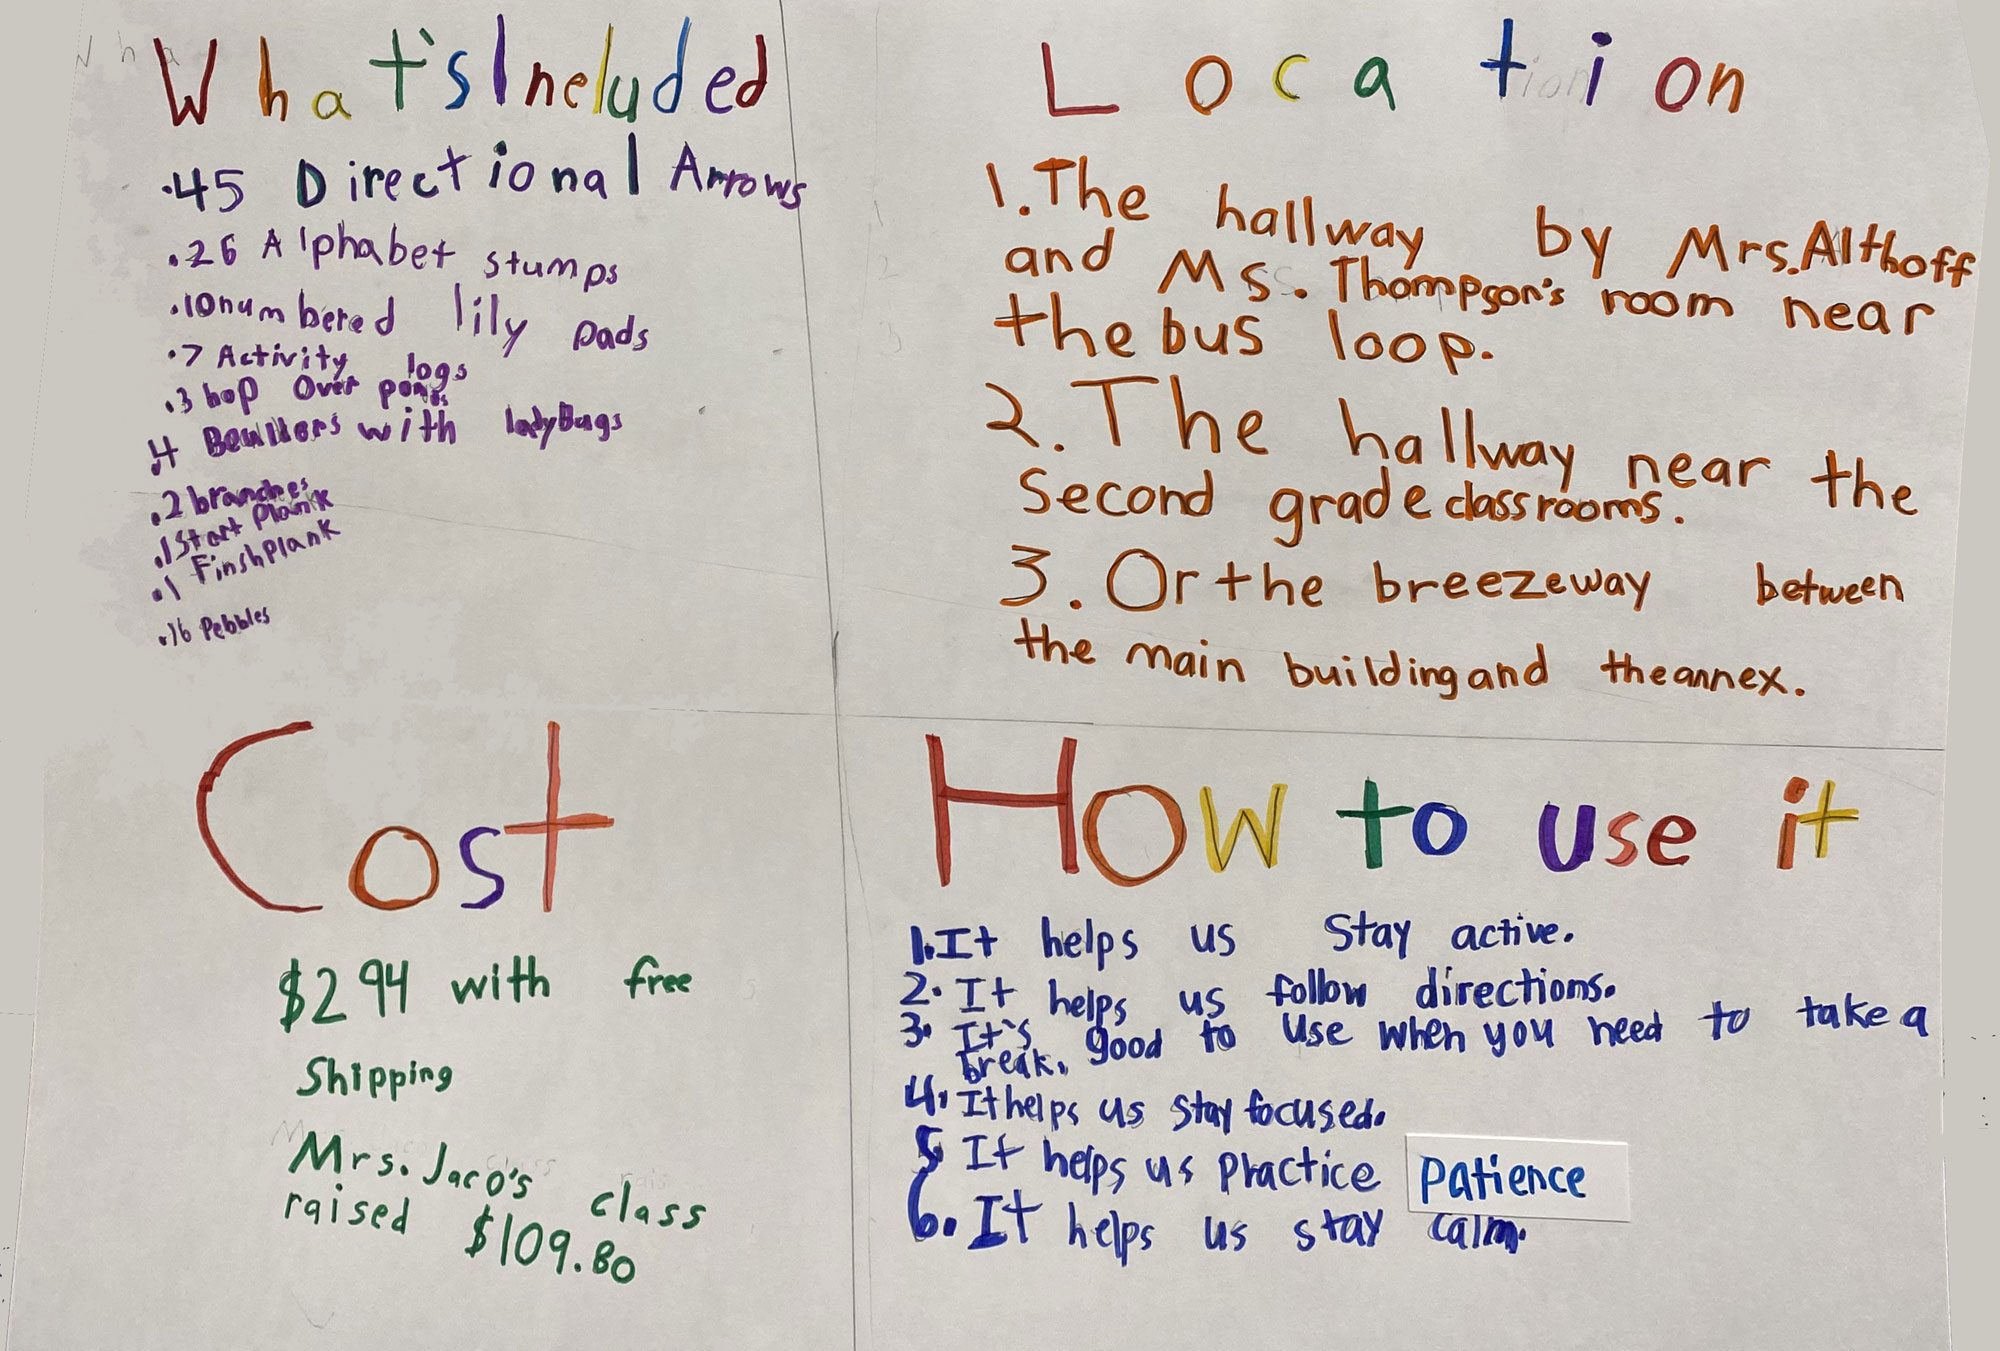 What's Included
.45 Directional Arrows
.26 Alphabet stumps
.10 numbered lily pads
.7 Activity logs
.3 hop Over ponds
.4 Boulders with ladyBugs
.2 branches
.1 Start Plank
.1 Finsh Plank
.16 Pebbles
Location
1. The hallway by Mrs. Althoff
and Ms. Thompson's room near
the bus loop.
2. The hallway near the
Second grade classrooms.
3. Or the breezeway between
the main building and the annex.
Cost
$294 with free
Shipping
Mrs. Jaco's class
raised $109.80
How to use it
1. It helps us Stay active.
2. It helps us follow directions.
3. It's good to use when you need to take a
break.
4. It helps us stay focused.
5 It helps us Practice Patience
6. It helps us stay calm.